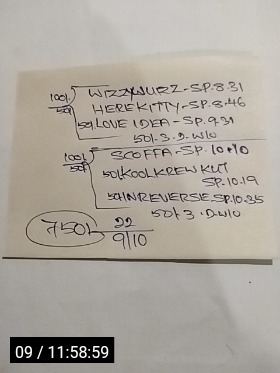 100/ WIZZYWUZZ-SP.8.31
50/ HEREKITTY-SP.8.46
50/LOVE IDEA-SP.9.31
50/.3.D.W/O
100/ SCOFFA-SP.10.10
50/ 50/KOOLKREWKUT
SP.10.19
50/INREVERSE.SP.10.35
50/3.D.W/O
750/ 22
9/10
09 / 11:58:59